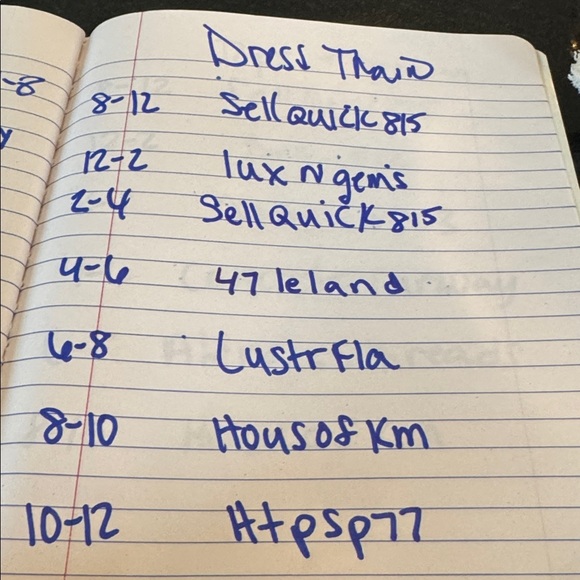 Dress Train
-8
8-12 SellQuick815
y
12-2 lux N gems
2-4 SellQuick815
4-6 47 leland
6-8 Lustrfla
8-10 HousofKm
10-12 Htpsp77